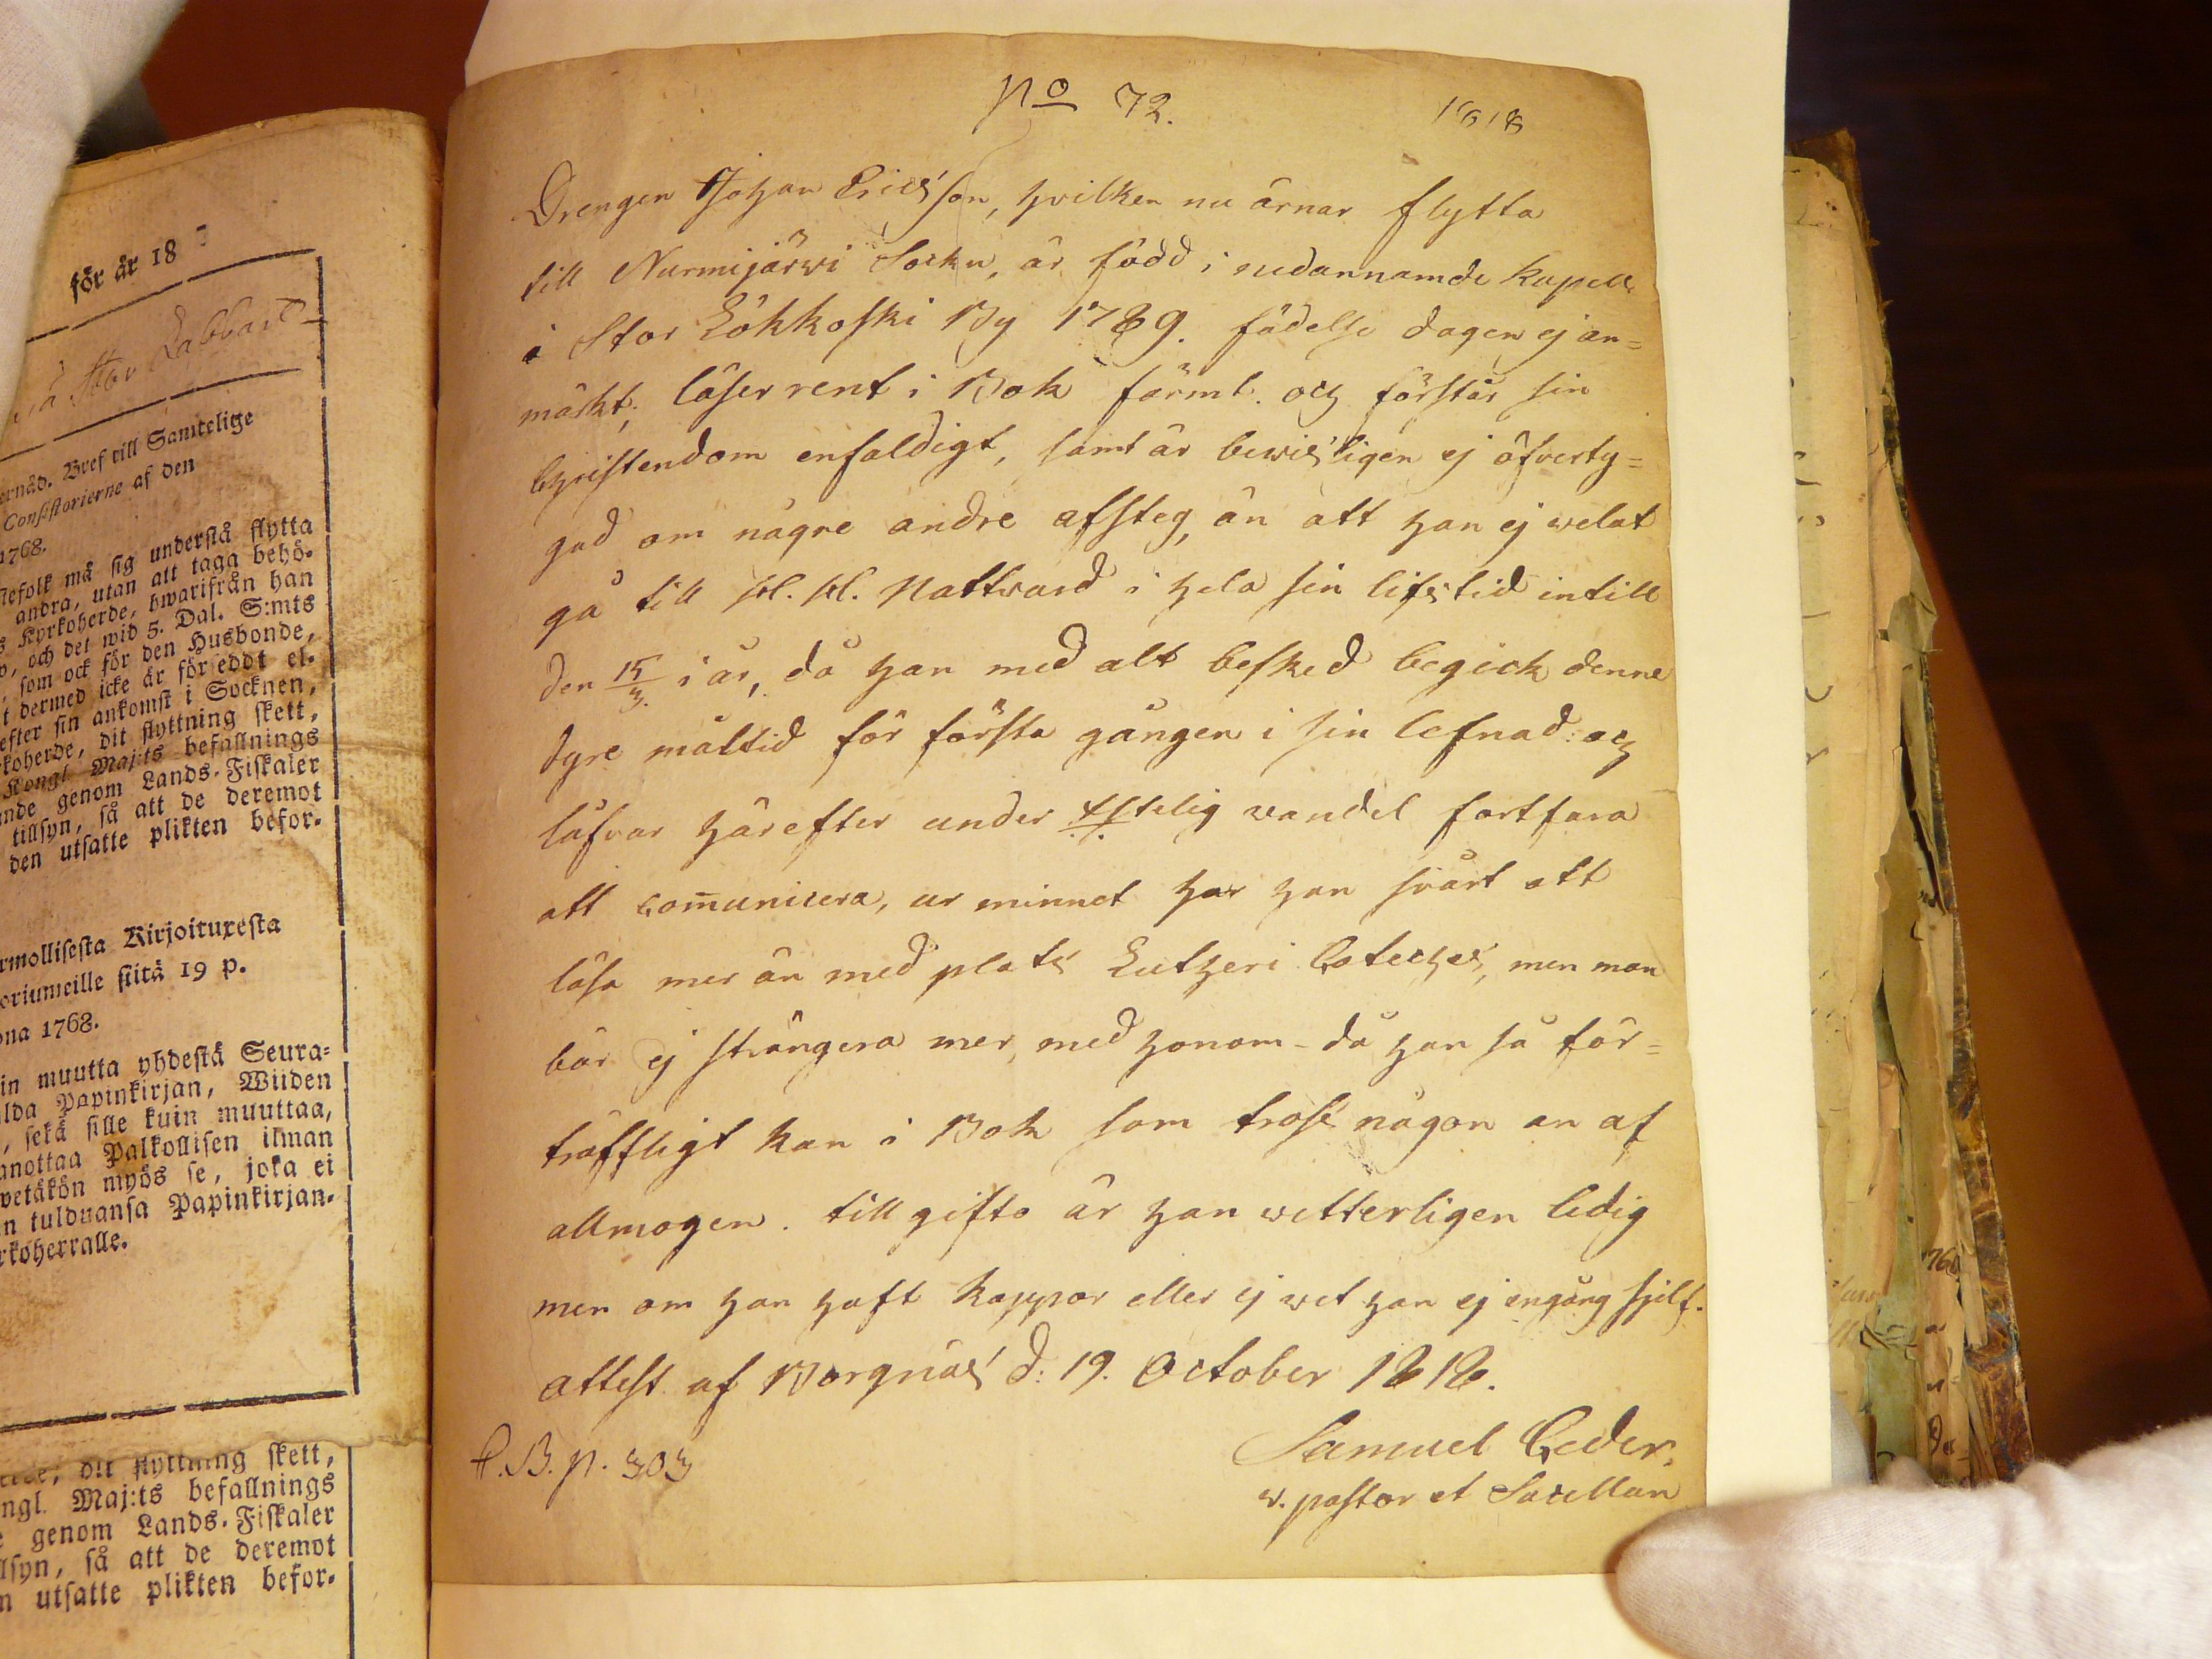 för år 18
Consistorierne af den
ernåd. Bref till Samtelige
1768.
nefolk må sig understå flytta
andra, utan att taga behö-
s Kyrkoherde, hwarifrån han
o, och det wid 5. Dal. S:mts
, som ock för den Husbonde,
t dermed icke är försedt el-
efter sin ankomst i Socknen,
rkoherde, dit flyttning skett,
Kongl. Maj:ts befallnings
nde genom Lands-Fiskaler
tillsyn, så att de deremot
den utsatte plikten befor-
rmollisesta Kirjoituxesta
oriumeille siitä 19 p.
ona 1768.
in muutta yhdestä Seura-
lda Papinkirjan, Wiiden
, sekä sille kuin muuttaa,
anottaa Palkollisen ilman
wetäkön myös se, joka ei
n tulduansa Papinkirjan-
rkoherralle.
dit flyttning skett,
ngl. Maj:ts befallnings
e genom Lands-Fiskaler
llsyn, så att de deremot
n utsatte plikten befor-
No 72. 1818
Drengen Johan Ericsson, hvilken nu ärnar flytta
till Nurmijärwi Sockn, är född i nedannamde Kapell
i Stor Lökkoski By 1789. födelse dagen ej an=
märkt; läser rent i Bok färml. och förstår sin
Christendom enfaldigt, samt är bewisligen ej öfverty=
gad om någre andre afsteg, än att han ej welat
gå till H. H. Nattvard i hela sin lifstid intill
den 15/3. i år, då han med alt besked begick denne
dyre måltid för första gången i sin lefnad: och
låfvar härefter under #stelig vandel fortfara
att com̄unicera, ur minnet har han svårt att
läsa mer än med plats Lutheri Cateches, men man
bör ej strängera mer, med honom - då han så för=
träffligt kan i Bok som trots någon an af
allmogen. till gifte är han witterligen ledig
men om han haft Koppor eller ej wet han ej engång sjelf.
attest af Borgnäs d: 19. October 1818.
C.B. p. 303
Samuel Ceder.
v. pastor et Sacellan